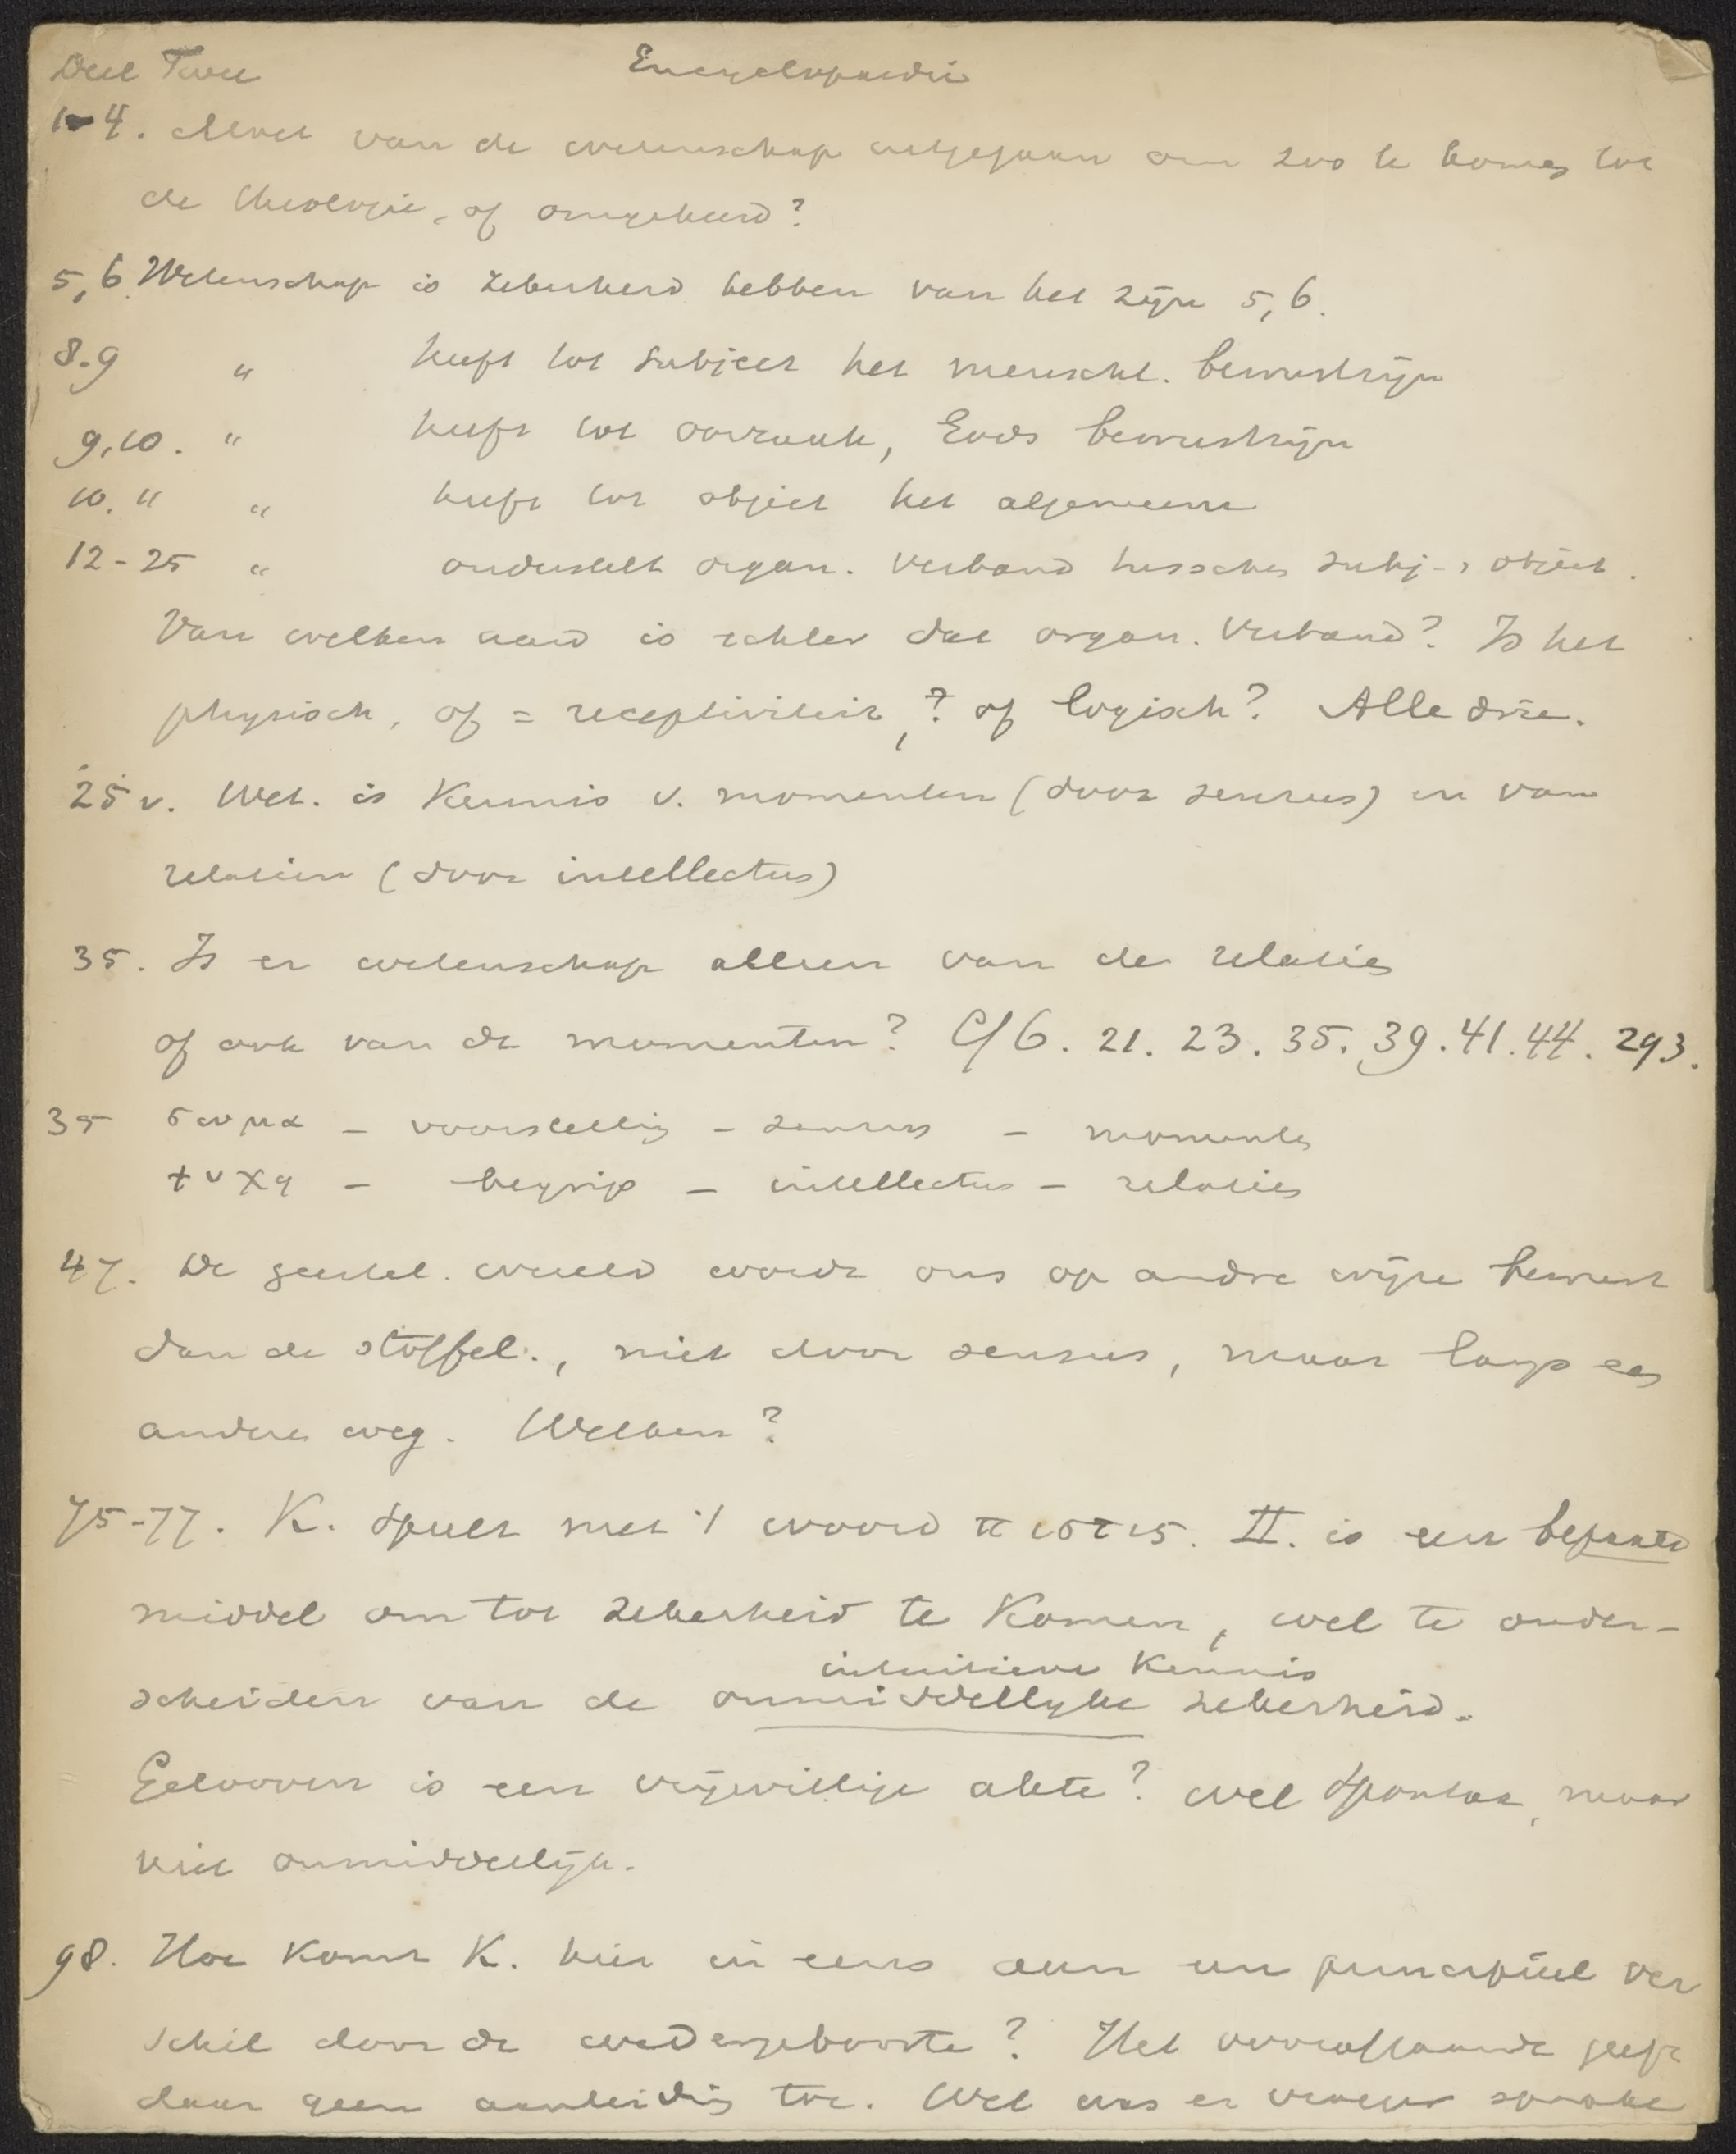 Deel Twee Encyclopaedie
1-4. Moet van de wetenschap uitgegaan om zoo te komen tot
de theologie, of omgekeerd?
5,6. Wetenschap is zekerheid hebben van het zijn 5,6.
8-9 " heeft tot subject het menschel. bewustzijn
9,10. " heeft tot oorzaak, Gods bewustzijn
10. " " heeft tot object het algemeene
12-25 " onderstelt organ. verband tusschen subj. - object.
Van welken aard is echter dat organ. verband? Is het
physisch, of = receptiviteit,? of logisch? Alle drie.
25 v. Wet. is Kennis v. momenten (door sensus) en van
relatien (door intellectus)
35. Is er wetenschap alleen van de relaties
of ook van de momenten? Cf 6. 21. 23. 35. 39. 41. 44. 293.
39 σωμα - voorstelling - sensus - momenten
ψυχη - begrip - intellectus - relaties
47. De geestel. wereld wordt ons op andre wijze bewust
dan de stoffel., niet door sensus, maar langs een
andere weg. Welken?
75-77. K. speelt met 't woord πιστις. Π. is een bepaald
middel om tot zekerheid te komen, wel te onder-
intuitieve Kennis
scheiden van de onmiddellijke zekerheid.
Gelooven is een vrijwillige akte? wel spontaan, maar
niet onmiddellijk.
98. Hoe komt K. hier in eens aan een principieel ver
schil door de wedergeboorte? Het voorafgaande geeft
daar geen aanleiding toe. Wel was er vroeger sprake